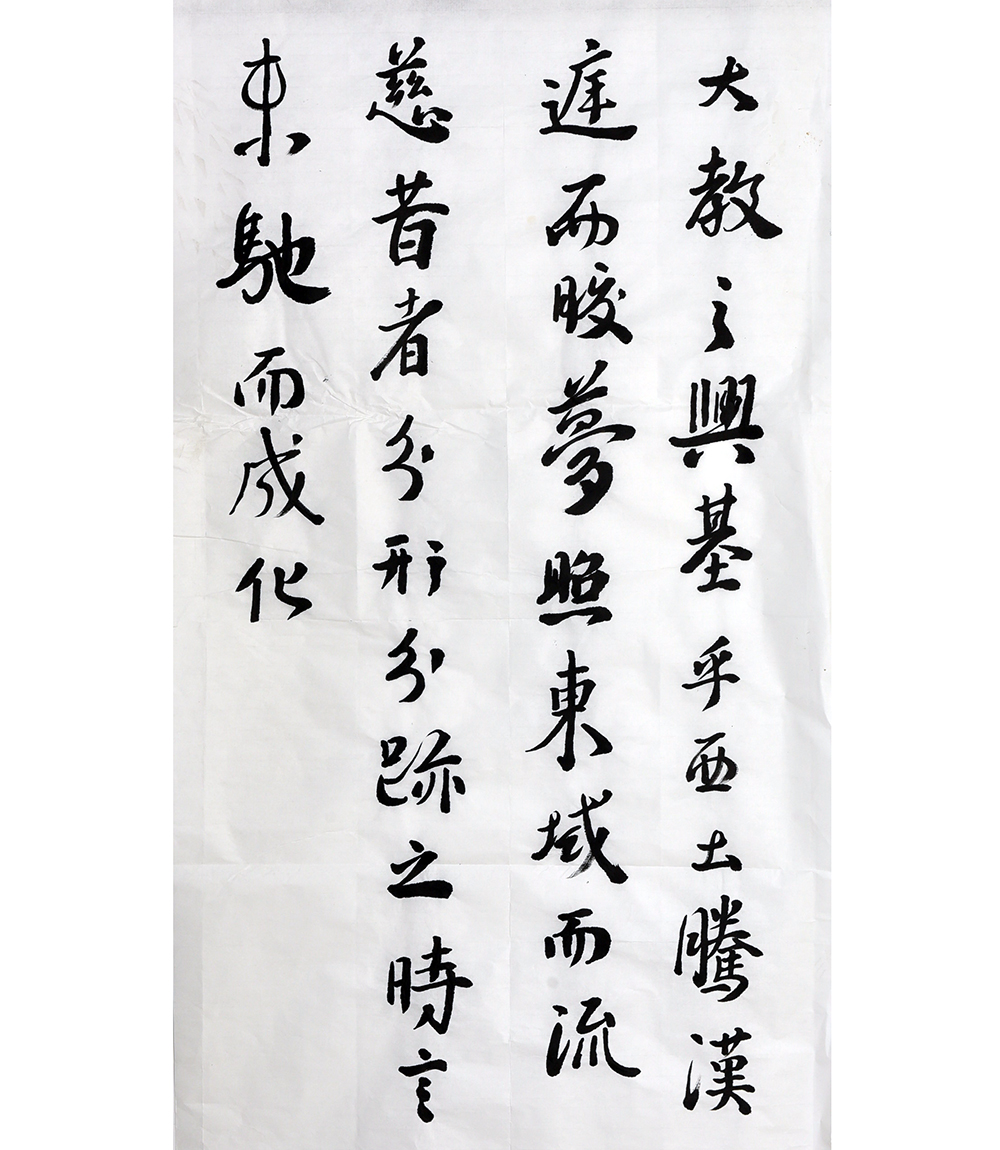 大教之興基乎西土騰漢
庭而皎夢照東域而流
慈昔者分形分跡之時言
未馳而成化